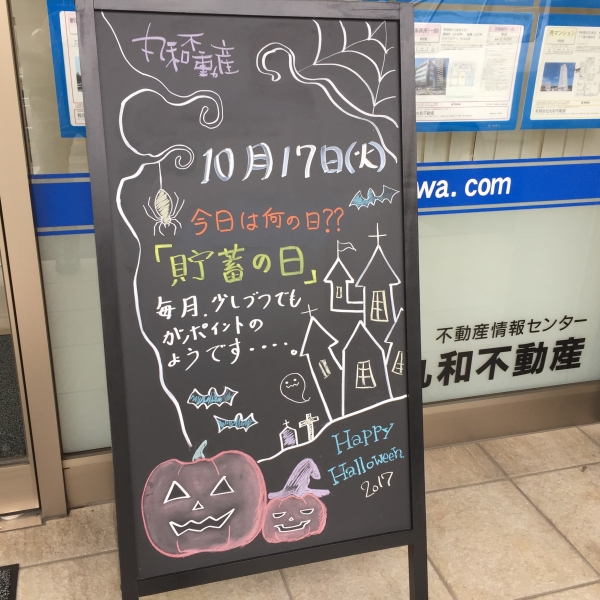 丸和不動産
10月17日(火)
今日は何の日??
「貯蓄の日」
毎月、少しづつでも
がポイントの
ようです‥‥。
Happy
Halloween
2017
売マンション
wa.com
不動産情報センター
丸和不動産